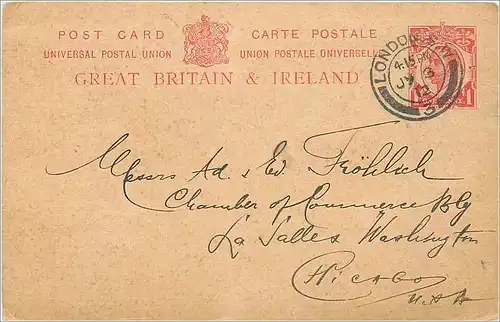 POST CARD CARTE POSTALE
UNIVERSAL POSTAL UNION UNION POSTALE UNIVERSELLE
GREAT BRITAIN & IRELAND
LONDON
4.15 PM
JY 3
12
Messrs Ad. & Ed. Fröhlich
Chamber of Commerce Bldg
La Salles Washington
CHICAGO
U.S.A